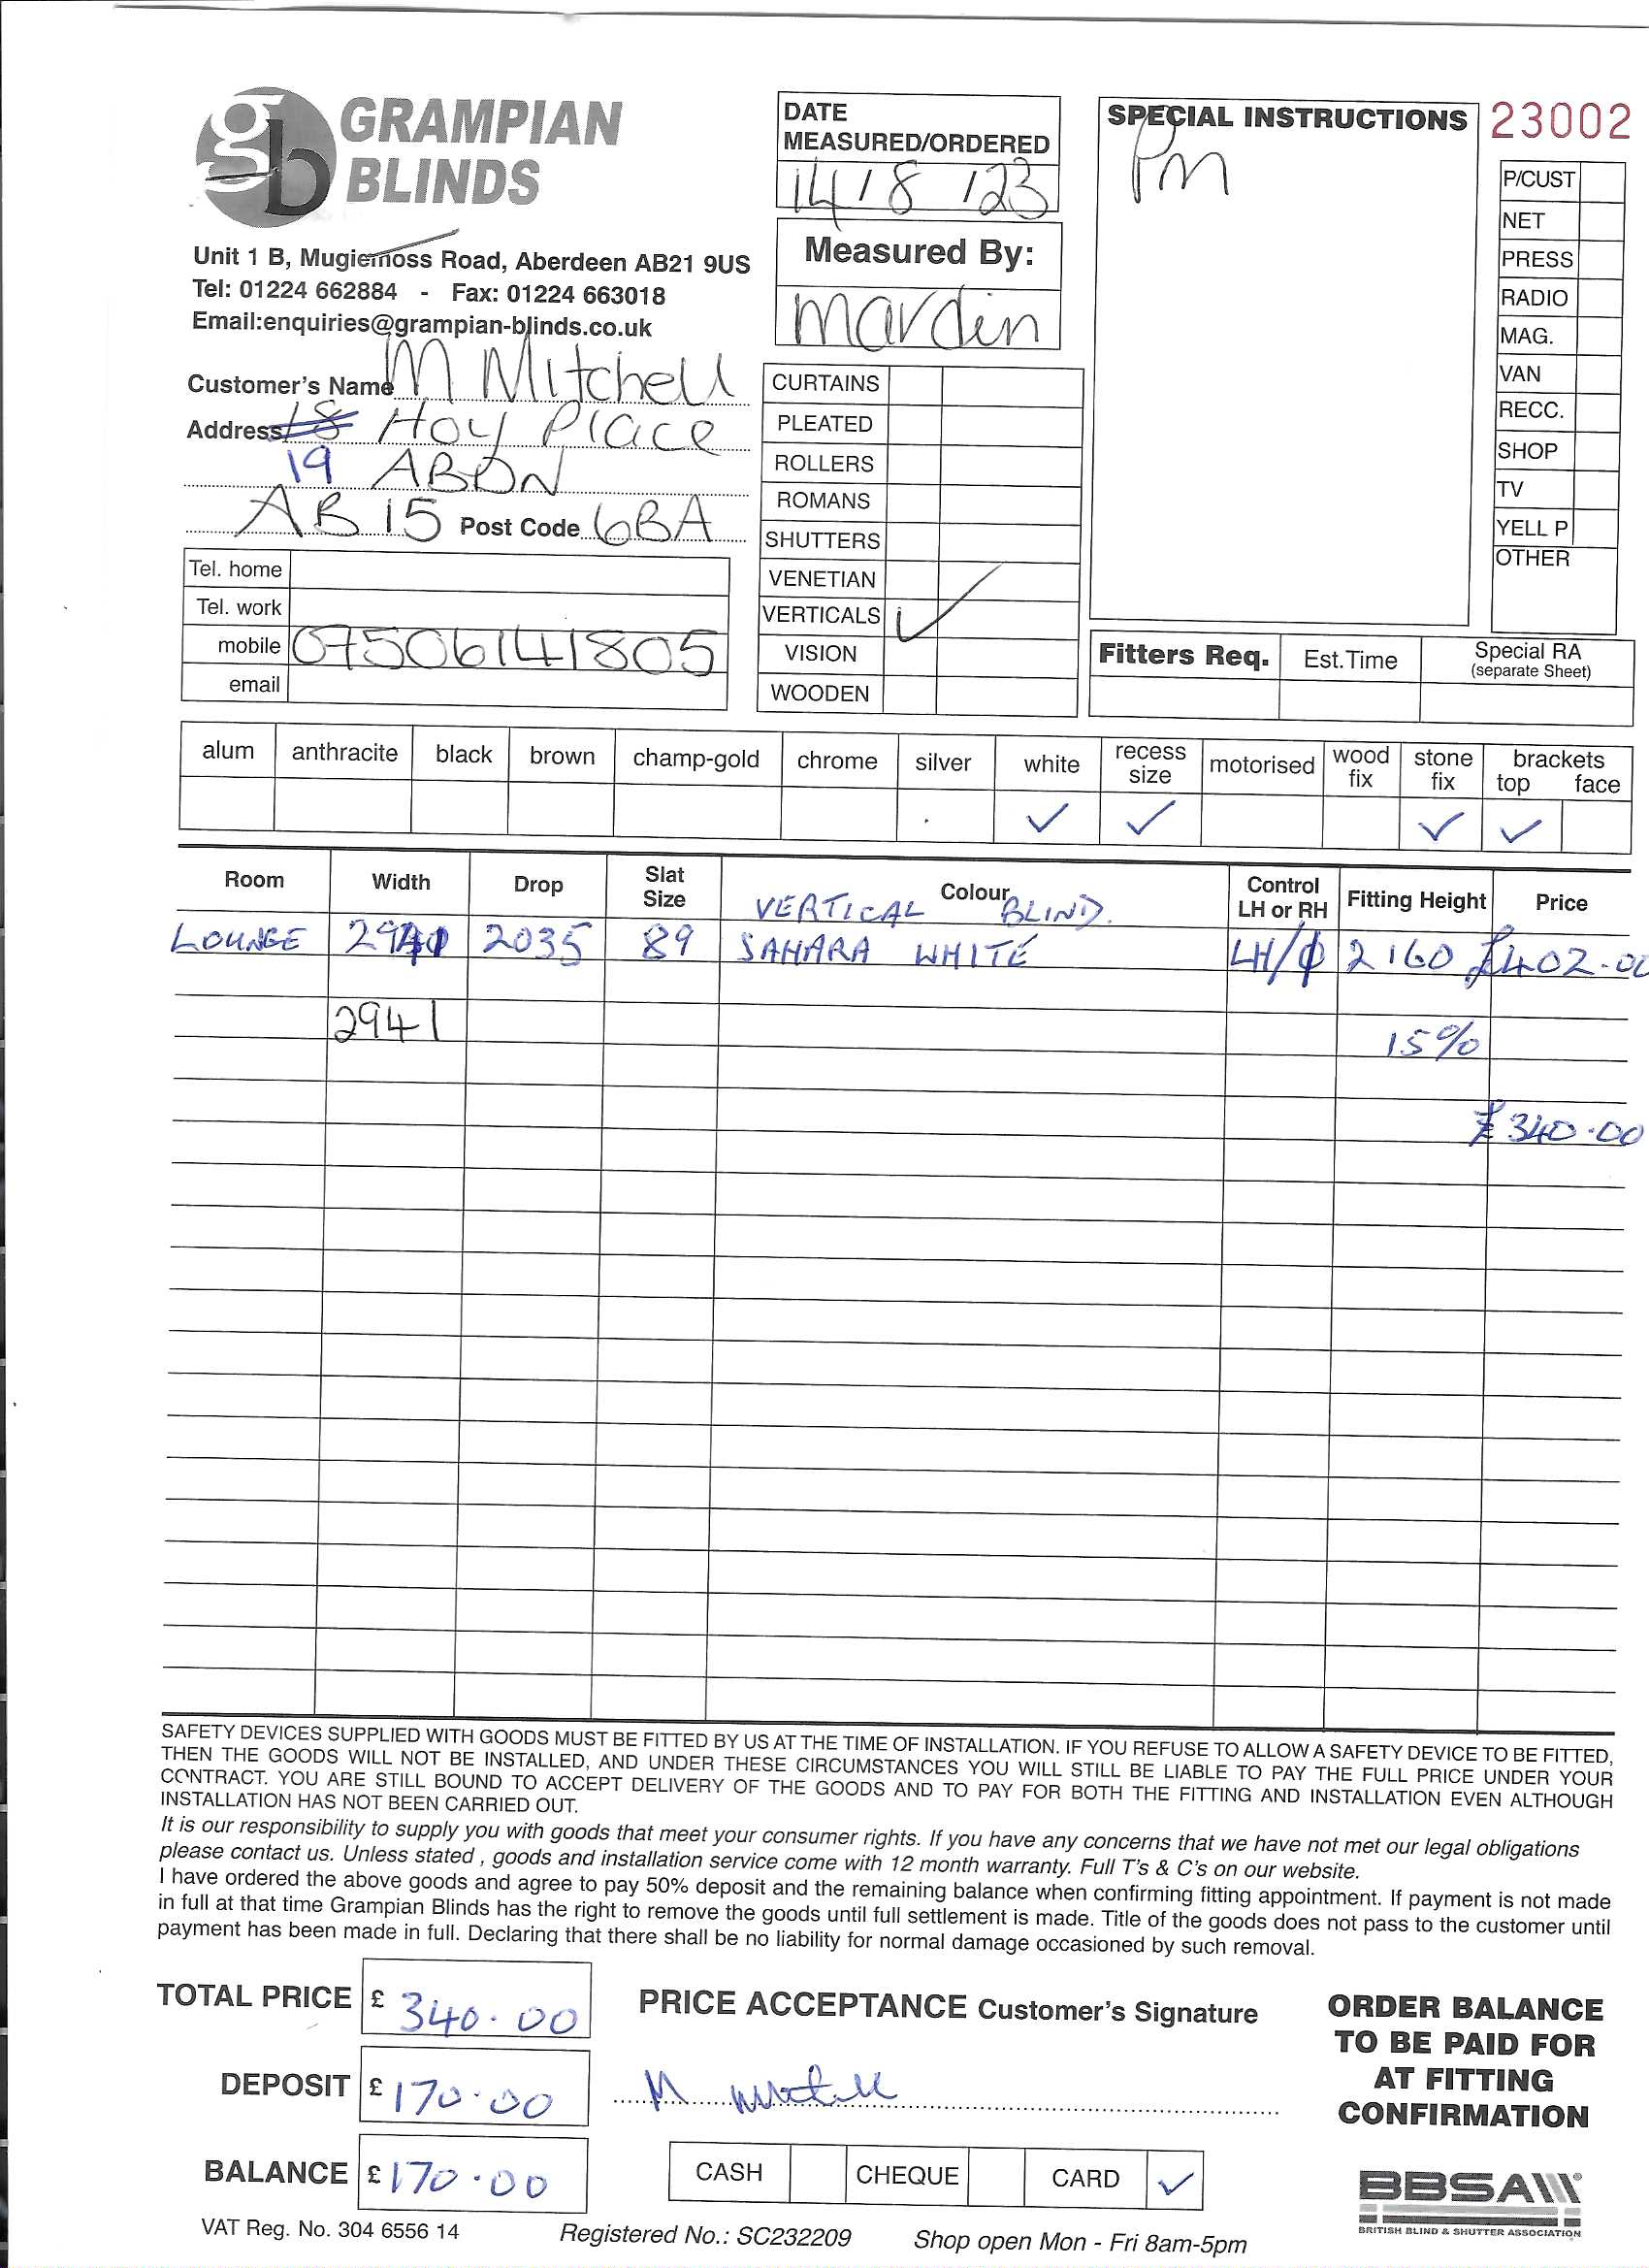 gb GRAMPIAN BLINDS
Unit 1 B, Mugiemoss Road, Aberdeen AB21 9US
Tel: 01224 662884 - Fax: 01224 663018
Email:enquiries@grampian-blinds.co.uk
DATE
MEASURED/ORDERED
14/8/23
Measured By:
SPECIAL INSTRUCTIONS
Pm
23002
P/CUST
NET
PRESS
RADIO
MAG.
VAN
RECC.
SHOP
TV
YELL P
OTHER
Customer's Name M Mitchell
Address 18 Hoy Place
19 ABDN
AB15 Post Code 6BA
Tel. home
Tel. work
mobile 07506141805
email
CURTAINS
PLEATED
ROLLERS
ROMANS
SHUTTERS
VENETIAN
VERTICALS ✓
VISION
WOODEN
Fitters Req. Est.Time Special RA
(separate Sheet)
alum anthracite black brown champ-gold chrome silver white recess size motorised wood fix stone fix brackets top face
✓ ✓ ✓ ✓
Room Width Drop Slat Size Colour Control LH or RH Fitting Height Price
VERTICAL BLIND.
LOUNGE 2035 89 SAHARA WHITE LH/ 2160 £402.00
2941
15%
£340.00
SAFETY DEVICES SUPPLIED WITH GOODS MUST BE FITTED BY US AT THE TIME OF INSTALLATION. IF YOU REFUSE TO ALLOW A SAFETY DEVICE TO BE FITTED,
THEN THE GOODS WILL NOT BE INSTALLED, AND UNDER THESE CIRCUMSTANCES YOU WILL STILL BE LIABLE TO PAY THE FULL PRICE UNDER YOUR
CONTRACT. YOU ARE STILL BOUND TO ACCEPT DELIVERY OF THE GOODS AND TO PAY FOR BOTH THE FITTING AND INSTALLATION EVEN ALTHOUGH
INSTALLATION HAS NOT BEEN CARRIED OUT.
It is our responsibility to supply you with goods that meet your consumer rights. If you have any concerns that we have not met our legal obligations
please contact us. Unless stated , goods and installation service come with 12 month warranty. Full T's & C's on our website.
I have ordered the above goods and agree to pay 50% deposit and the remaining balance when confirming fitting appointment. If payment is not made
in full at that time Grampian Blinds has the right to remove the goods until full settlement is made. Title of the goods does not pass to the customer until
payment has been made in full. Declaring that there shall be no liability for normal damage occasioned by such removal.
TOTAL PRICE £ 340.00
DEPOSIT £ 170.00
BALANCE £ 170.00
PRICE ACCEPTANCE Customer's Signature
CASH CHEQUE CARD ✓
ORDER BALANCE
TO BE PAID FOR
AT FITTING
CONFIRMATION
BBSA
BRITISH BLIND & SHUTTER ASSOCIATION
VAT Reg. No. 304 6556 14 Registered No.: SC232209 Shop open Mon - Fri 8am-5pm